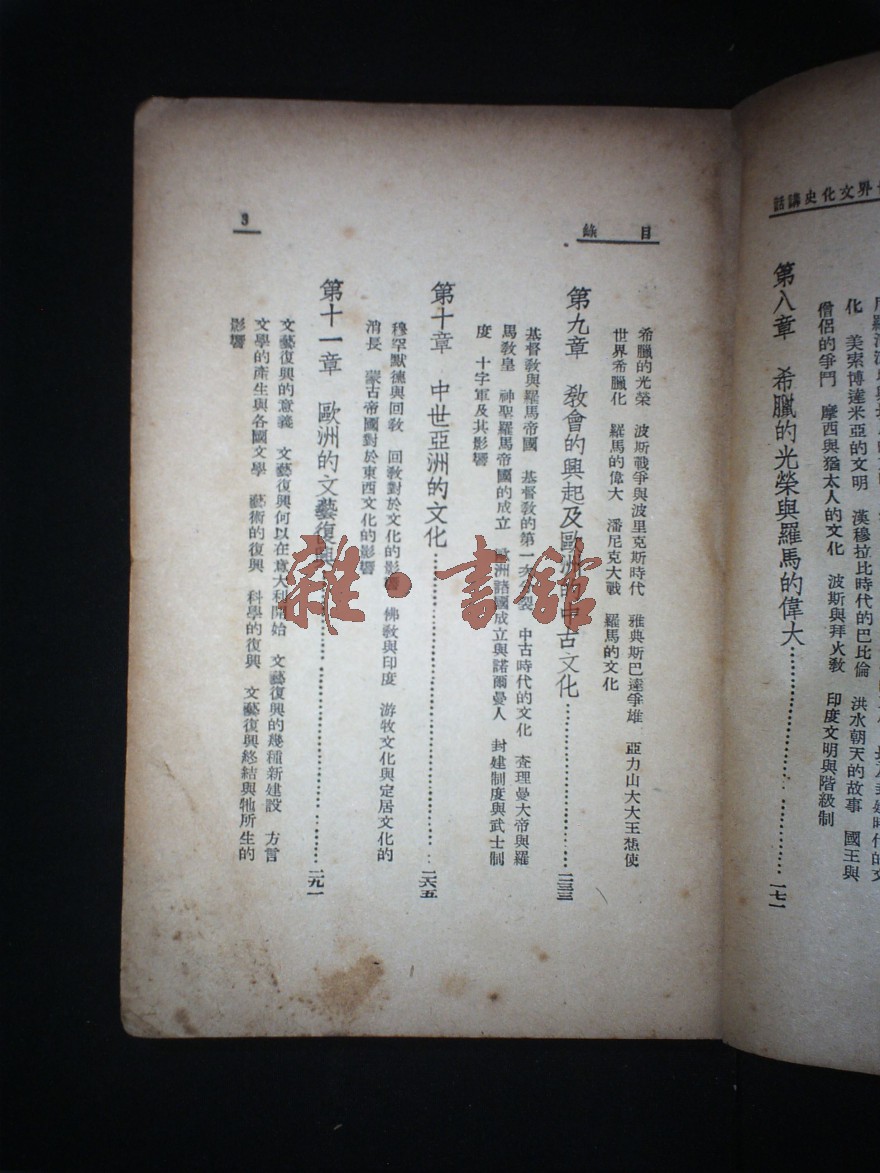 界文化史講話
化　美索博達米亞的文明　漢穆拉比時代的巴比倫　洪水朝天的故事　國王與
僧侶的爭鬥　摩西與猶太人的文化　波斯與拜火教　印度文明與階級制
第八章　希臘的光榮與羅馬的偉大……一七一
目錄
希臘的光榮　波斯戰爭與波里克斯時代　雅典斯巴達爭雄　亞力山大大王想使
世界希臘化　羅馬的偉大　潘尼克大戰　羅馬的文化
第九章　教會的興起及歐洲的中古文化……二三三
基督教與羅馬帝國　基督教的第一次分裂　中古時代的文化　查理曼大帝與羅
馬教皇　神聖羅馬帝國的成立　歐洲諸國成立與諾爾曼人　封建制度與武士制
度　十字軍及其影響
第十章　中世亞洲的文化……二六五
穆罕默德與回教　回教對於文化的影響　佛教與印度　游牧文化與定居文化的
消長　蒙古帝國對於東西文化的影響
第十一章　歐洲的文藝復興……二九一
文藝復興的意義　文藝復興何以在意大利開始　文藝復興的幾種新建設　方言
文學的產生與各國文學　藝術的復興　科學的復興　文藝復興終結與牠所生的
影響
3
雜·書館